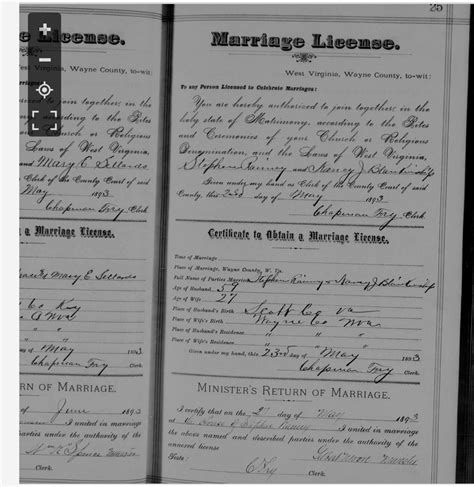 25
Marriage License.
West Virginia, Wayne County, to-wit:
To any Person Licensed to Celebrate Marriages:
You are hereby authorized to join together in the
holy state of Matrimony, according to the Rites
and Ceremonies of your Church or Religious
Denomination, and the Laws of West Virginia,
Stephen and Nancy J Blankenship
Given under my hand as Clerk of the County Court of said
County, this 23d day of May 1893
Chapman Fry, Clerk
Certificate to Obtain a Marriage License.
Time of Marriage
Place of Marriage, Wayne County, W. Va.
Full Name of Parties Married, Stephen & Nancy J Blankenship
Age of Husband, 59
Age of Wife, 27
Place of Husband's Birth, Scott Co Va
Place of Wife's Birth, Wayne Co W Va
Place of Husband's Residence, " "
Place of Wife's Residence, " "
Given under my hand, this 23d day of May 1893
Chapman Fry Clerk
MINISTER'S RETURN OF MARRIAGE.
I certify that on the day of May 1893
at house of I united in marriage
the above named and described parties under the authority of the
annexed license
Teste: C Fry Clerk.
License.
West Virginia, Wayne County, to-wit:
Marriages:
to join together, in the
according to the Rites
Church or Religious
Laws of West Virginia,
and Mary E Sellards
Clerk of the County Court of said
May 1893
Chapman Fry Clerk
a Marriage License.
Mary E Sellards
Co Ky
Co W Va
" "
" "
of May 1893
Chapman Fry Clerk
RN OF MARRIAGE.
of June 1893
I united in marriage
parties under the authority of the
Spence
Clerk.